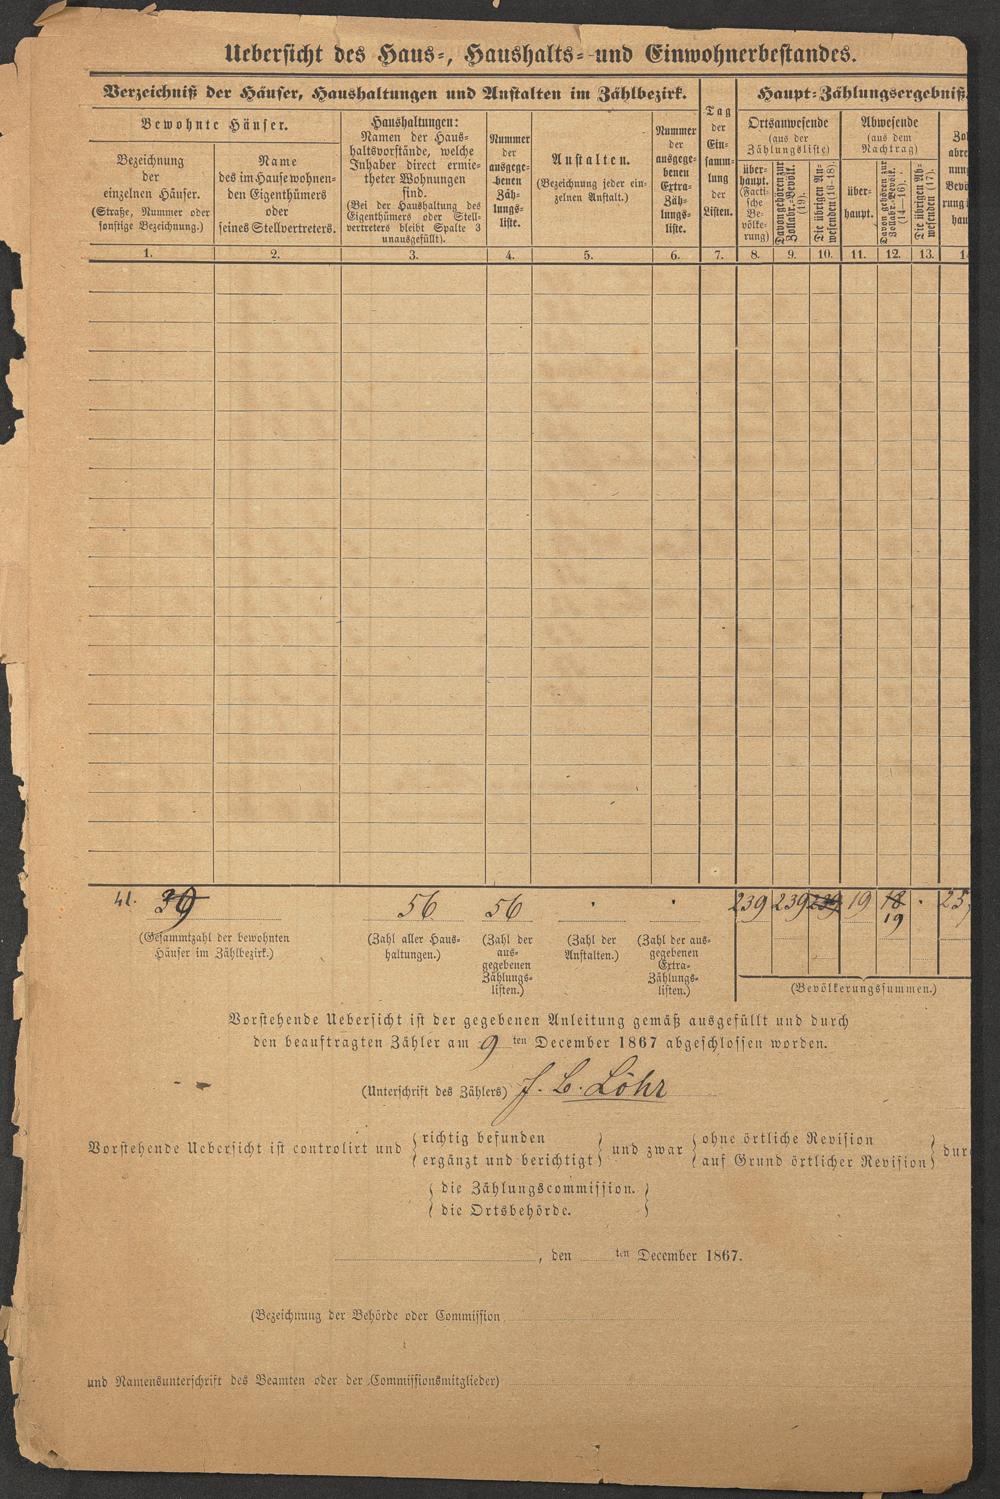 Uebersicht des Haus-, Haushalts- und Einwohnerbestandes.
Verzeichniß der Häuser, Haushaltungen und Anstalten im Zählbezirk.
Bewohnte Häuser.
Bezeichnung
der
einzelnen Häuser.
(Straße, Nummer oder
sonstige Bezeichnung.)
Name
des im Hause wohnen-
den Eigenthümers
oder
seines Stellvertreters.
Haushaltungen:
Namen der Haus-
haltsvorstände, welche
Inhaber direct ermie-
theter Wohnungen
sind.
(Bei der Haushaltung des
Eigenthümers oder Stell-
vertreters bleibt Spalte 3
unausgefüllt).
Nummer
der
ausgege-
benen
Zäh-
lungs-
liste.
Anstalten.
(Bezeichnung jeder ein-
zelnen Anstalt.)
Nummer
der
ausgege-
benen
Extra-
Zäh-
lungs-
liste.
Tag
der
Ein-
samm-
lung
der
Listen.
Haupt-Zählungsergebniß.
Ortsanwesende
(aus der
Zählungsliste)
über-
haupt.
(Facti-
sche
Be-
völke-
rung)
Davon gehören zur
Zollabr.-Bevölk.
(19).
Die übrigen An-
wesenden (16-18).
Abwesende
(aus dem
Nachtrag)
über-
haupt.
Davon gehören zur
Zollabr.-Bevölk.
(14-16).
Die übrigen Ab-
wesenden (17).
Zol
abre
nung
Bevö
rung i
hau
1. 2. 3. 4. 5. 6. 7. 8. 9. 10. 11. 12. 13. 14
41. 39 56 56 . . 239 239 239 19 18 . 25
19
(Gesammtzahl der bewohnten
Häuser im Zählbezirk.)
(Zahl aller Haus-
haltungen.)
(Zahl der
aus-
gegebenen
Zählungs-
listen.)
(Zahl der
Anstalten.)
(Zahl der aus-
gegebenen
Extra-
Zählungs-
listen.)
(Bevölkerungssummen.)
Vorstehende Uebersicht ist der gegebenen Anleitung gemäß ausgefüllt und durch
den beauftragten Zähler am 9 ten December 1867 abgeschlossen worden.
(Unterschrift des Zählers) J. L. Löhr
Vorstehende Uebersicht ist controlirt und { richtig befunden
ergänzt und berichtigt } und zwar { ohne örtliche Revision
auf Grund örtlicher Revision } durc
{ die Zählungscommission.
die Ortsbehörde. }
, den ten December 1867.
(Bezeichnung der Behörde oder Commission
und Namensunterschrift des Beamten oder der Commissionsmitglieder)